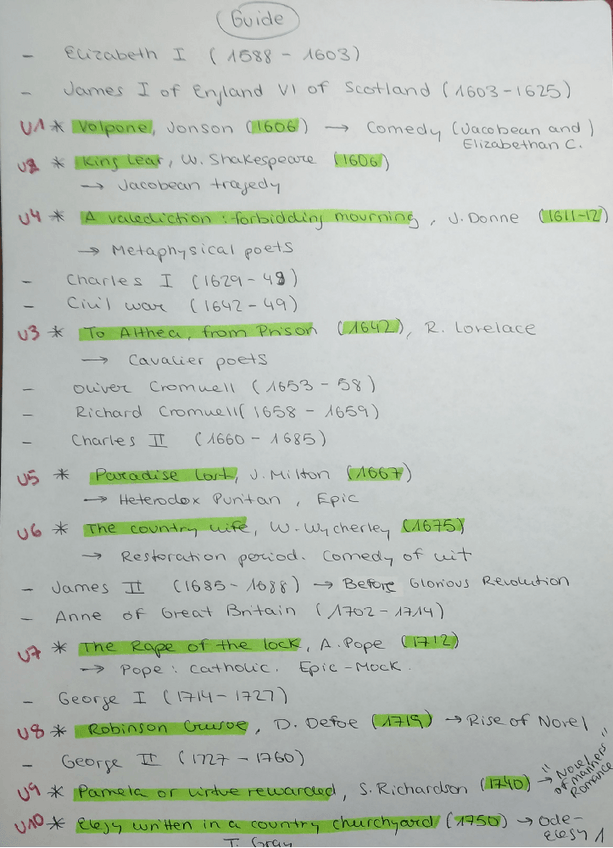 Guide
- Elizabeth I (1588 - 1603)
- James I of England VI of Scotland (1603-1625)
U1 * Volpone, Jonson (1606) → Comedy (Jacobean and)
Elizabethan C.
U2 * King Lear, W. Shakespeare (1606)
→ Jacobean tragedy
U4 * A valediction: forbidding mourning, J. Donne (1611-12)
→ Metaphysical poets
- Charles I (1629 - 49)
- Civil war (1642 - 49)
U3 * To Althea, from Prison (1642), R. Lovelace
→ Cavalier poets
- Oliver Cromwell (1653 - 58)
- Richard Cromwell (1658 - 1659)
- Charles II (1660 - 1685)
U5 * Paradise Lost, J. Milton (1667)
→ Heterodox Puritan, Epic
U6 * The country wife, W. Wycherley (1675)
→ Restoration period. Comedy of wit
- James II (1685 - 1688) → Before Glorious Revolution
- Anne of Great Britain (1702 - 1714)
U7 * The Rape of the lock, A. Pope (1712)
→ Pope: Catholic. Epic-Mock.
- George I (1714 - 1727)
U8 * Robinson Crusoe, D. Defoe (1719) → Rise of Novel
- George II (1727 - 1760)
U9 * Pamela or virtue rewarded, S. Richardson (1740) → "Novel
of manners"
Romance
U10 * Elegy written in a country churchyard (1750) → Ode-
Elegy
T. Gray
1